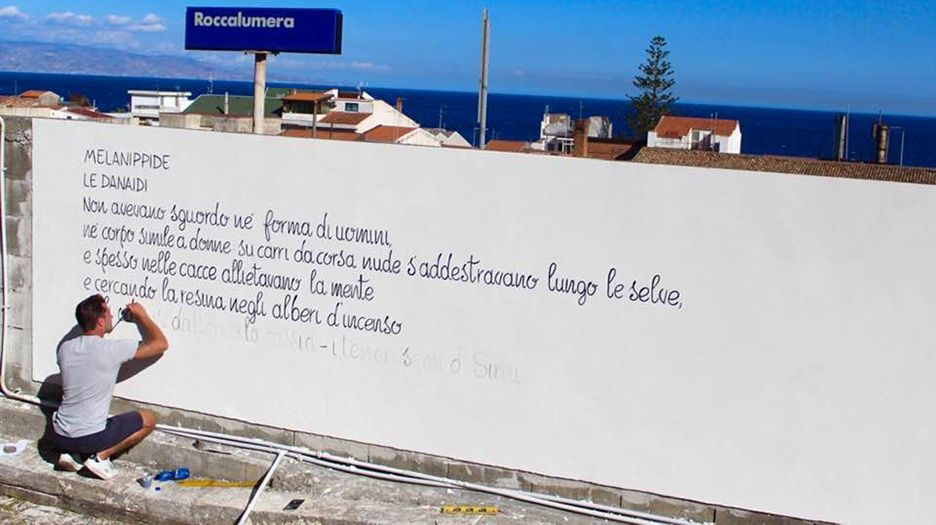 Roccalumera
MELANIPPIDE
LE DANAIDI
Non avevano sguordo né forma di uomini,
né corpo simile a donne: su carri da corsa nude s'addestravano lungo le selve,
e spesso nelle cacce allietavano la mente
e cercando la resina negli alberi d'incenso
datteri la cassia - i teneri semi di Siria